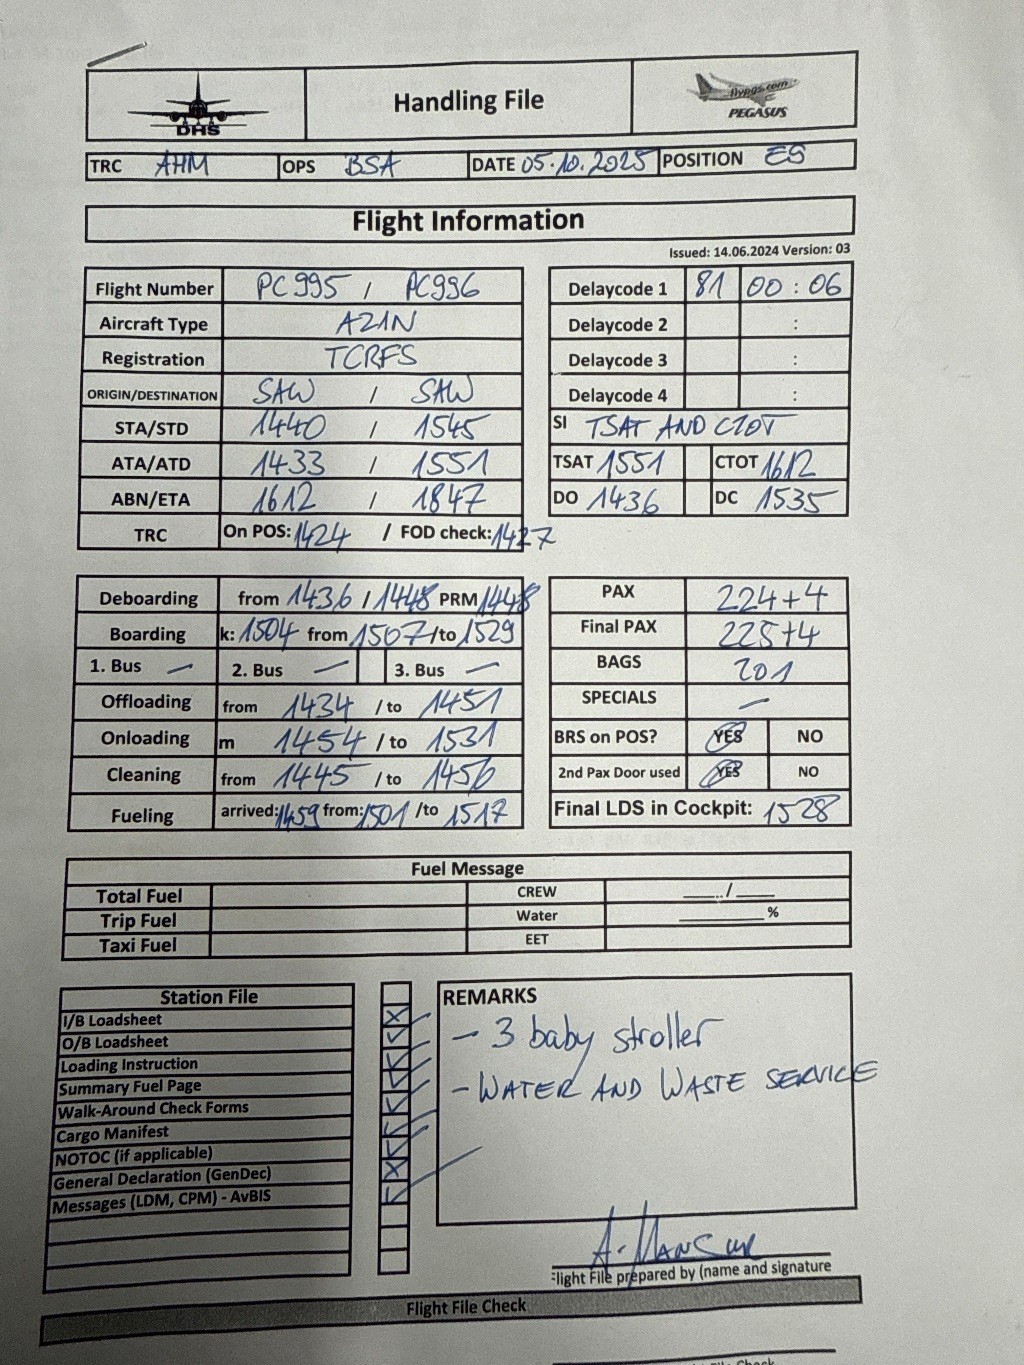 DHS
Handling File
flypgs.com
PEGASUS
TRC AHM OPS BSA DATE 05.10.2025 POSITION E8
Flight Information
Issued: 14.06.2024 Version: 03
Flight Number PC995 / PC996
Aircraft Type A21N
Registration TCRFS
ORIGIN/DESTINATION SAW / SAW
STA/STD 1440 / 1545
ATA/ATD 1433 / 1551
ABN/ETA 1612 / 1847
TRC On POS: 1424 / FOD check: 1427
Delaycode 1 81 00 : 06
Delaycode 2 :
Delaycode 3 :
Delaycode 4 :
SI TSAT AND CTOT
TSAT 1551 CTOT 1612
DO 1436 DC 1535
Deboarding from 1436 / 1448 PRM 1448
Boarding k: 1504 from 1507 /to 1529
1. Bus — 2. Bus — 3. Bus —
Offloading from 1434 / to 1451
Onloading m 1454 / to 1531
Cleaning from 1445 / to 1456
Fueling arrived: 1459 from: 1501 /to 1517
PAX 224+4
Final PAX 225+4
BAGS 201
SPECIALS —
BRS on POS? YES NO
2nd Pax Door used YES NO
Final LDS in Cockpit: 1528
Fuel Message
Total Fuel CREW ___./____
Trip Fuel Water ________ %
Taxi Fuel EET
Station File
I/B Loadsheet
O/B Loadsheet
Loading Instruction
Summary Fuel Page
Walk-Around Check Forms
Cargo Manifest
NOTOC (if applicable)
General Declaration (GenDec)
Messages (LDM, CPM) - AvBIS
REMARKS
- 3 baby stroller
- WATER AND WASTE SERVICE
A. MANSUR
light File prepared by (name and signature
Flight File Check